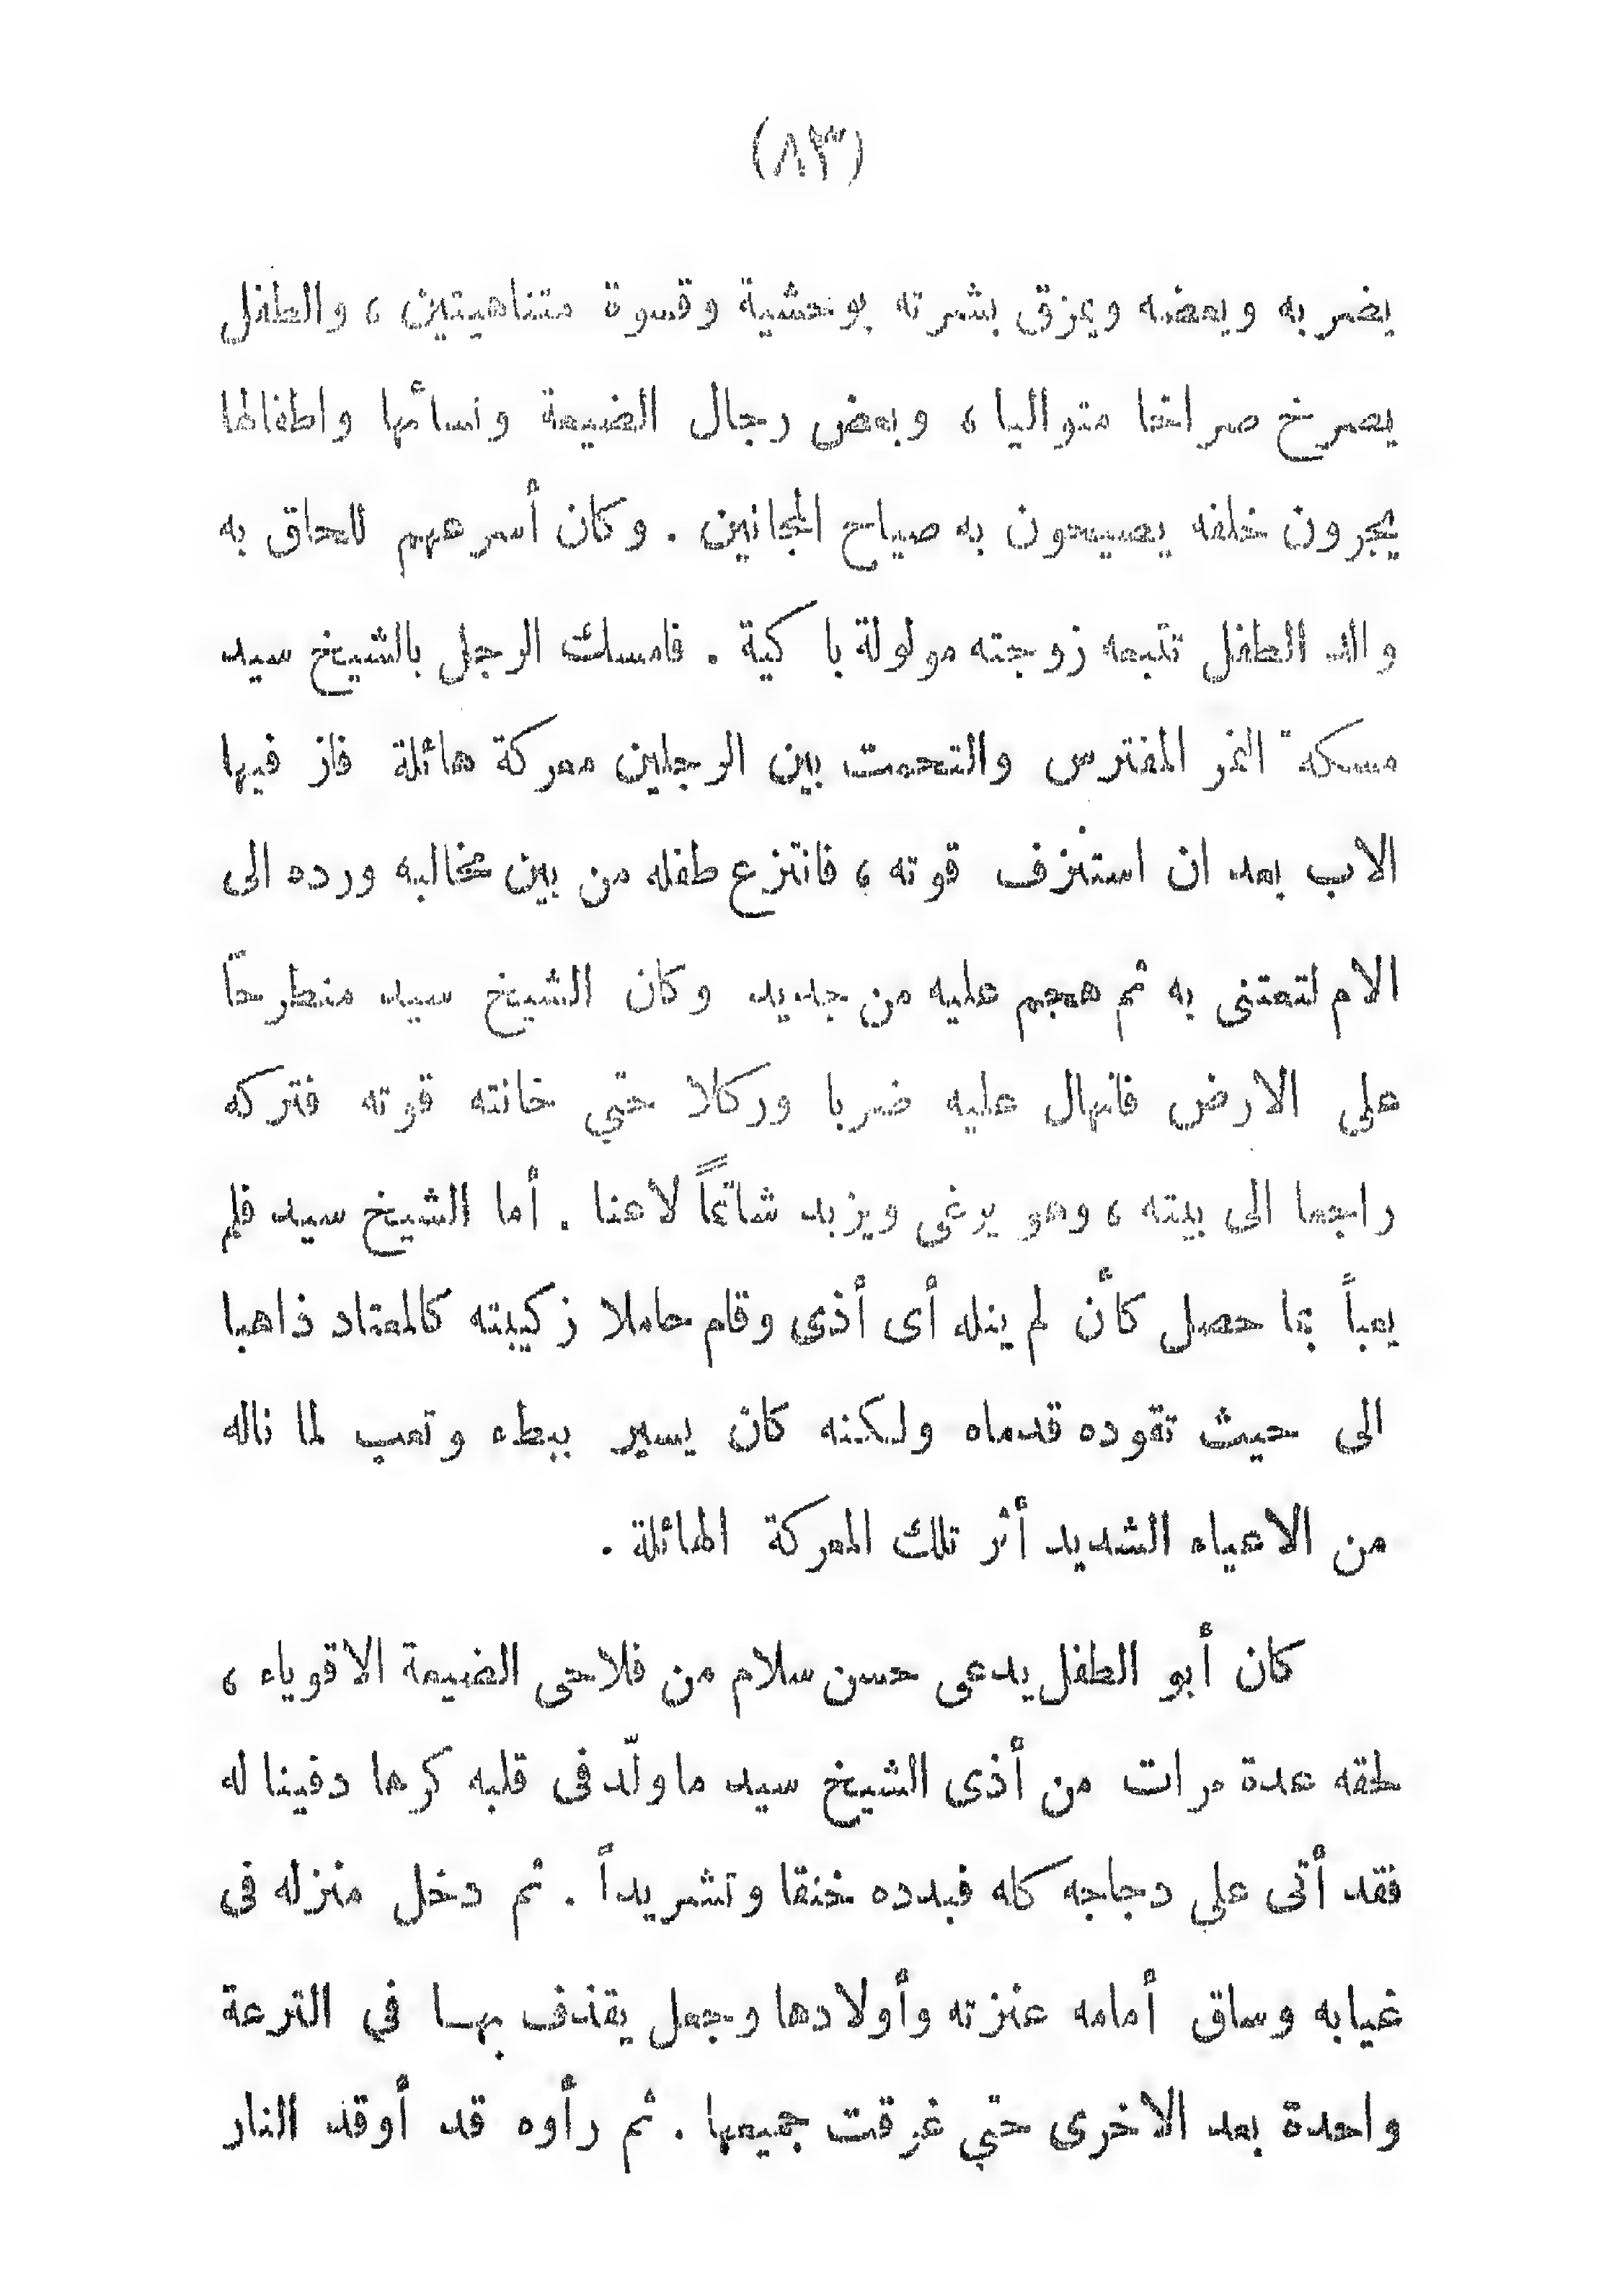 (٨٣)
يضربه ويعضه ويمزق بشرته بوحشية وقسوة متناهيتين ، والطفل
يصرخ صراخا متواليا ، وبعض رجال الضيعة ونسائها واطفالها
يجرون خلفه يصيحون به صياح المجانين . وكان أسرعهم للحاق به
والد الطفل تتبعه زوجته مولولة باكية . فامسك الرجل بالشيخ سيد
مسكة النمر المفترس والتحمت بين الرجلين معركة هائلة فاز فيها
الاب بعد ان استنزف قوته ، فانتزع طفله من بين مخالبه ورده الى
الام لتعتنى به ثم هجم عليه من جديد وكان الشيخ سيد منطرحاً
على الارض فانهال عليه ضربا وركلا حتي خانته قوته فتركه
راجعا الى بيته ، وهو يرغى ويزبد شاتماً لاعنا . أما الشيخ سيد فلم
يعبأ بما حصل كأن لم ينله أى أذى وقام حاملا زكيبته كالمعتاد ذاهبا
الى حيث تقوده قدماه ولكنه كان يسير ببطء وتعب لما ناله
من الاعياء الشديد أثر تلك المعركة الهائلة .
كان أبو الطفل يدعى حسن سلام من فلاحى الضيعة الاقوياء ،
لحقه عدة مرات من أذى الشيخ سيد ما ولّد فى قلبه كرها دفينا له
فقد أتى علي دجاجه كله فبدده خنقا وتشريداً . ثم دخل منزله فى
غيابه وساق أمامه عنزته وأولادها وجعل يقذف بها في الترعة
واحدة بعد الاخرى حتي غرقت جميعها . ثم رأوه قد أوقد النار